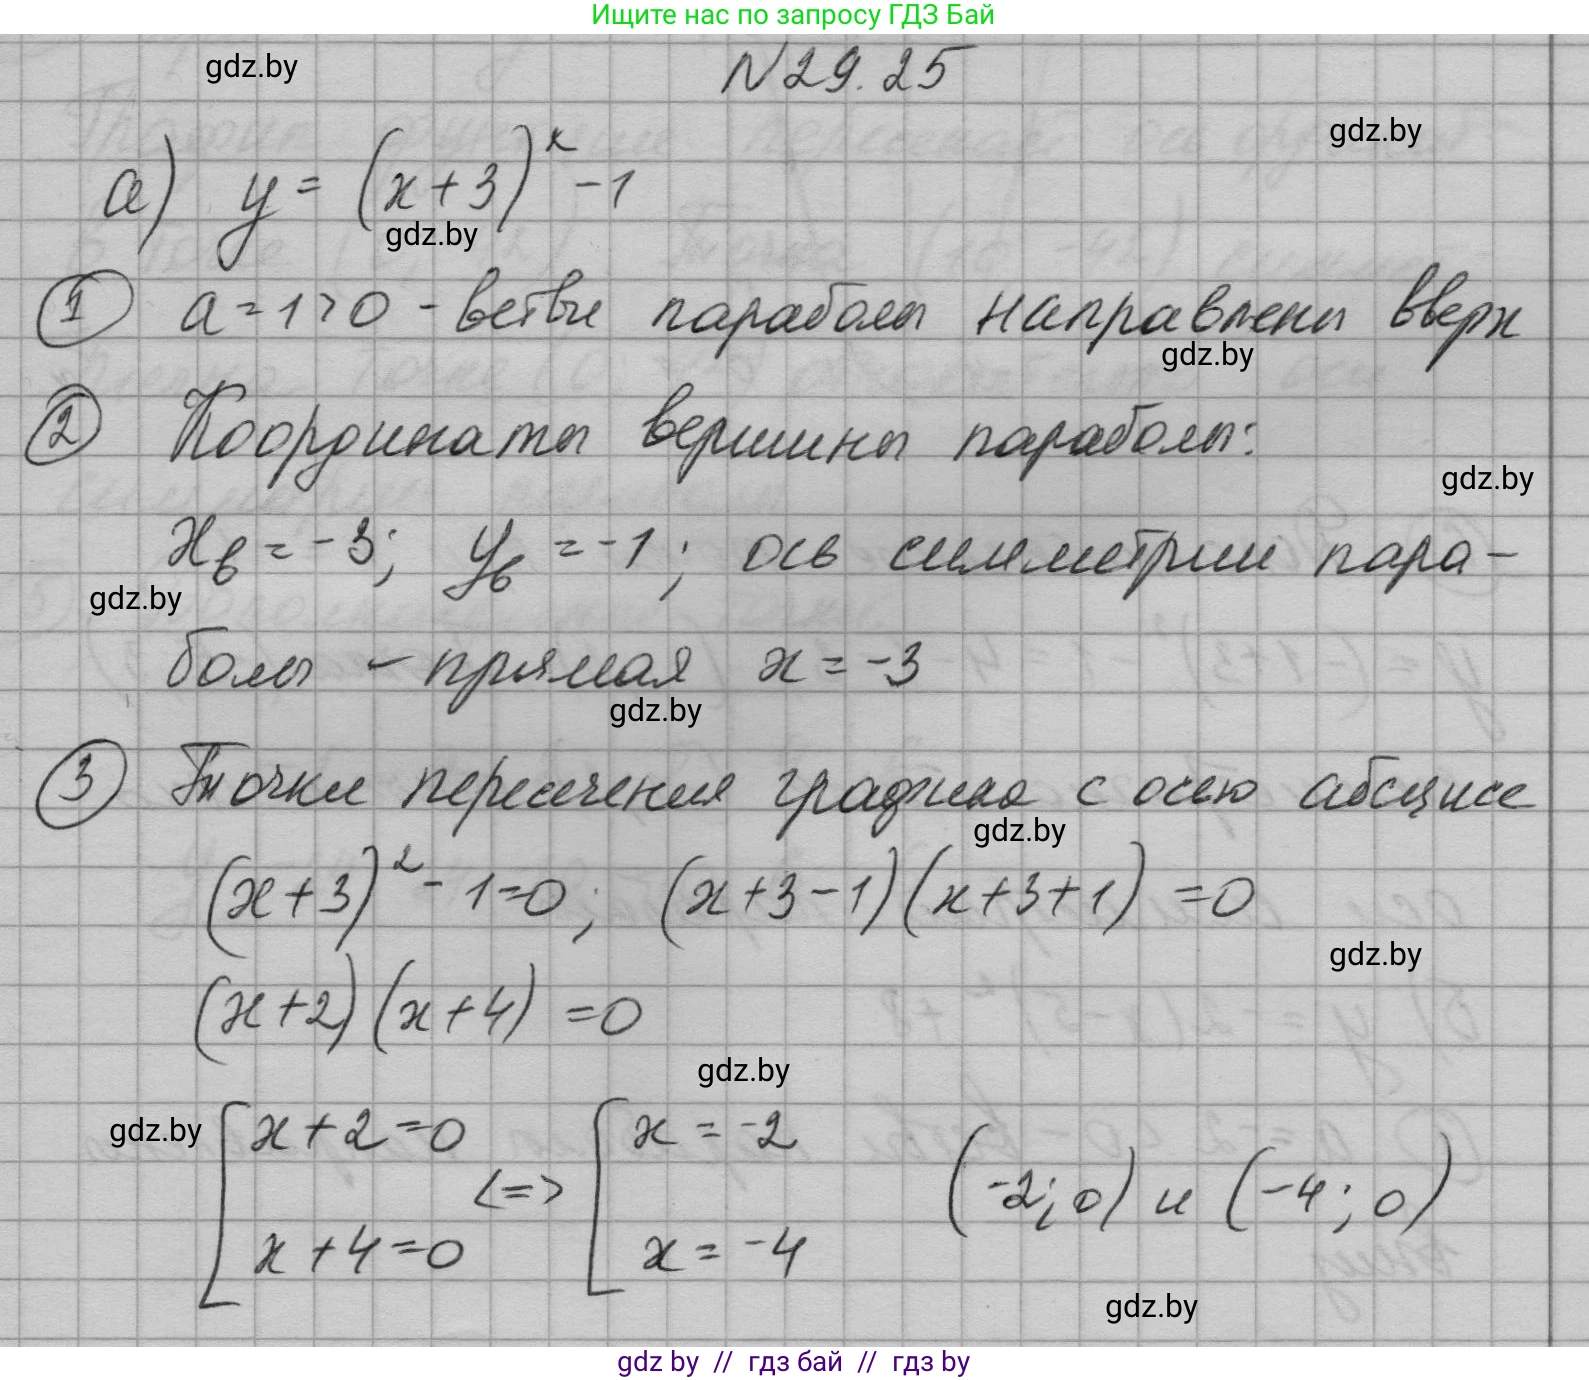 Ищите нас по запросу ГДЗ Бай
gdz.by
N 29.25
gdz.by
а) y = (x+3)² - 1
gdz.by
① a = 1 > 0 - ветви параболы направлены вверх
gdz.by
② Координаты вершины параболы:
gdz.by
xв = -3; yв = -1; ось симметрии пара-
gdz.by
болы - прямая x = -3
gdz.by
③ Точки пересечения графика с осью абсцисс
gdz.by
(x+3)² - 1 = 0; (x+3-1)(x+3+1) = 0
gdz.by
(x+2)(x+4) = 0
gdz.by
gdz.by
[ x+2=0 <=> [ x = -2
(-2; 0) и (-4; 0)
x+4=0 x = -4
gdz.by
gdz by // гдз бай // гдз by